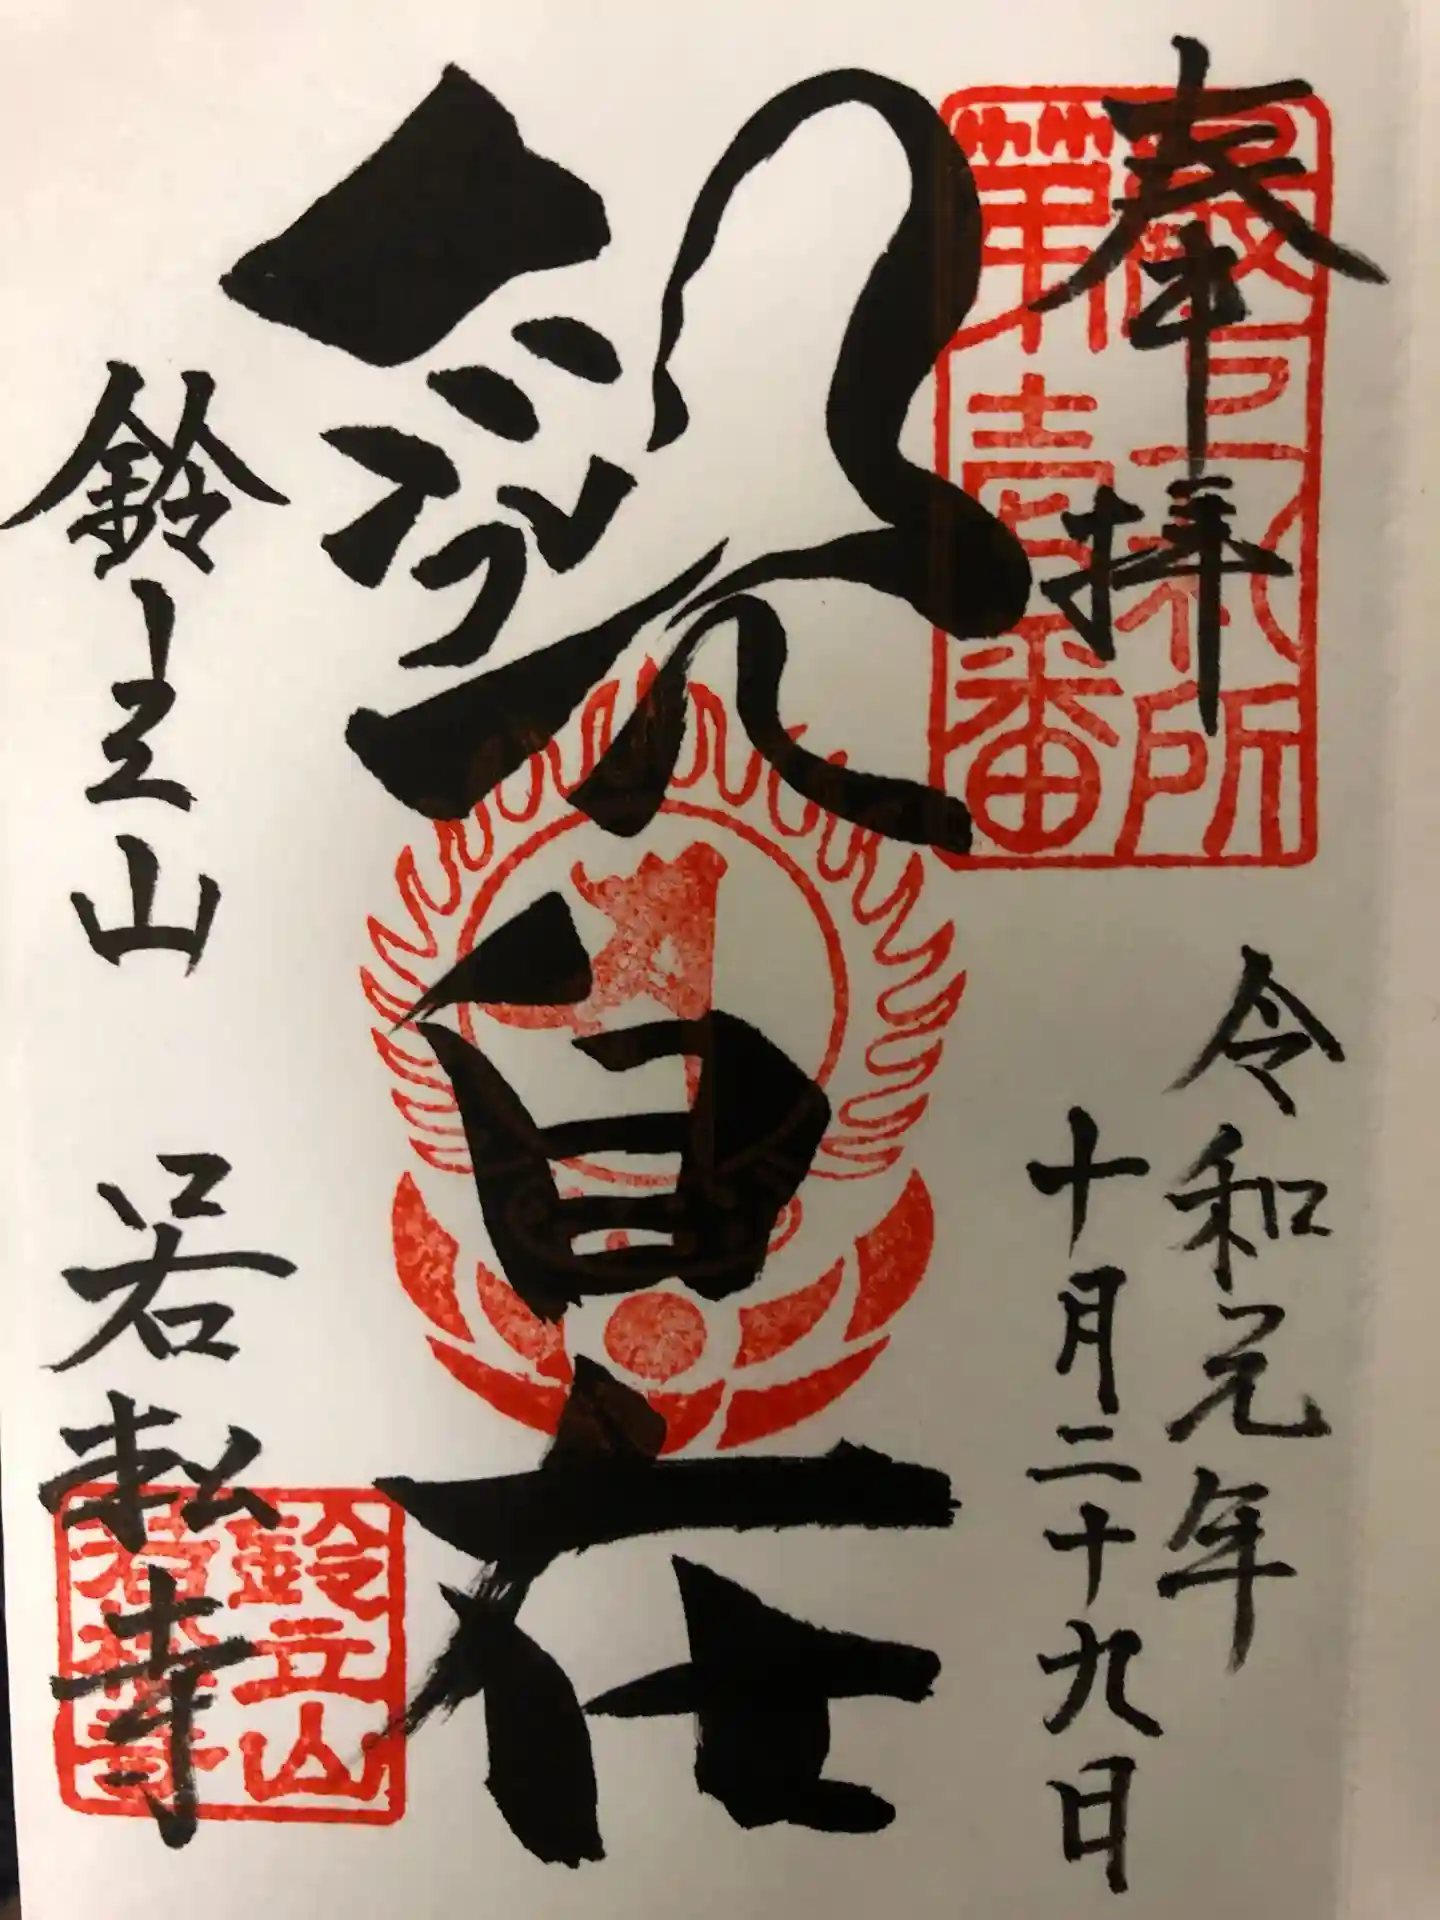 奉拝
最上札所
第壹番
令和元年
十月二十九日
観自在
鈴立山 若松寺
鈴立山
若松寺